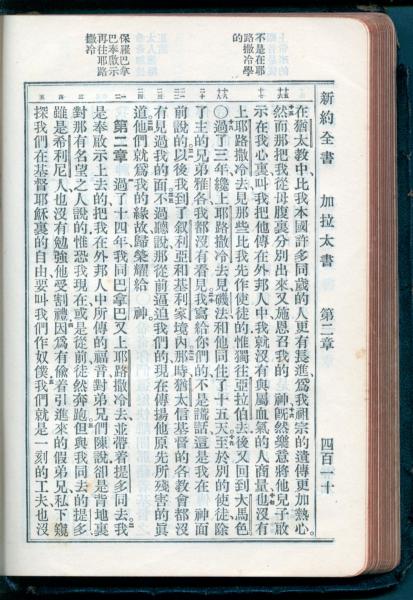 新約全書 加拉太書 第二章 四百一十
不是在耶
路撒冷學
的
保羅巴拿
巴奉啟示
再往耶路
撒冷
在猶太教中比我本國許多同歲的人更有長進爲我祖宗的遺傳更加熱心
然而那把我從母腹裏分別出來又施恩召我的 神既然樂意將他兒子啟
示在我心裏叫我把他傳在外邦人中我就沒有與屬血氣的人商量也沒有
上耶路撒冷去見那些比我先作使徒的惟獨往亞拉伯去後又回到大馬色
〇過了三年纔上耶路撒冷去見磯法和他同住了十五天至於別的使徒除
了主的兄弟雅各我都沒有看見我寫給你們的不是謊話這是我在 神面
前說的以後我到了叙利亞和基利家境內那時猶太信基督的各教會都沒
有見過我的面不過聽說那從前逼迫我們的現在傳揚他原先所殘害的眞
道他們就爲我的緣故歸榮耀給 神
第二章 過了十四年我同巴拿巴又上耶路撒冷去並帶着提多同去我
是奉啟示上去的把我在外邦人中所傳的福音對弟兄們陳說卻是背地裏
對那有名望之人說的惟恐我現在或是從前徒然奔跑但與我同去的提多
雖是希利尼人也沒有勉強他受割禮因爲有偷着引進來的假弟兄私下窺
探我們在基督耶穌裏的自由要叫我們作奴僕我們就是一刻的工夫也沒